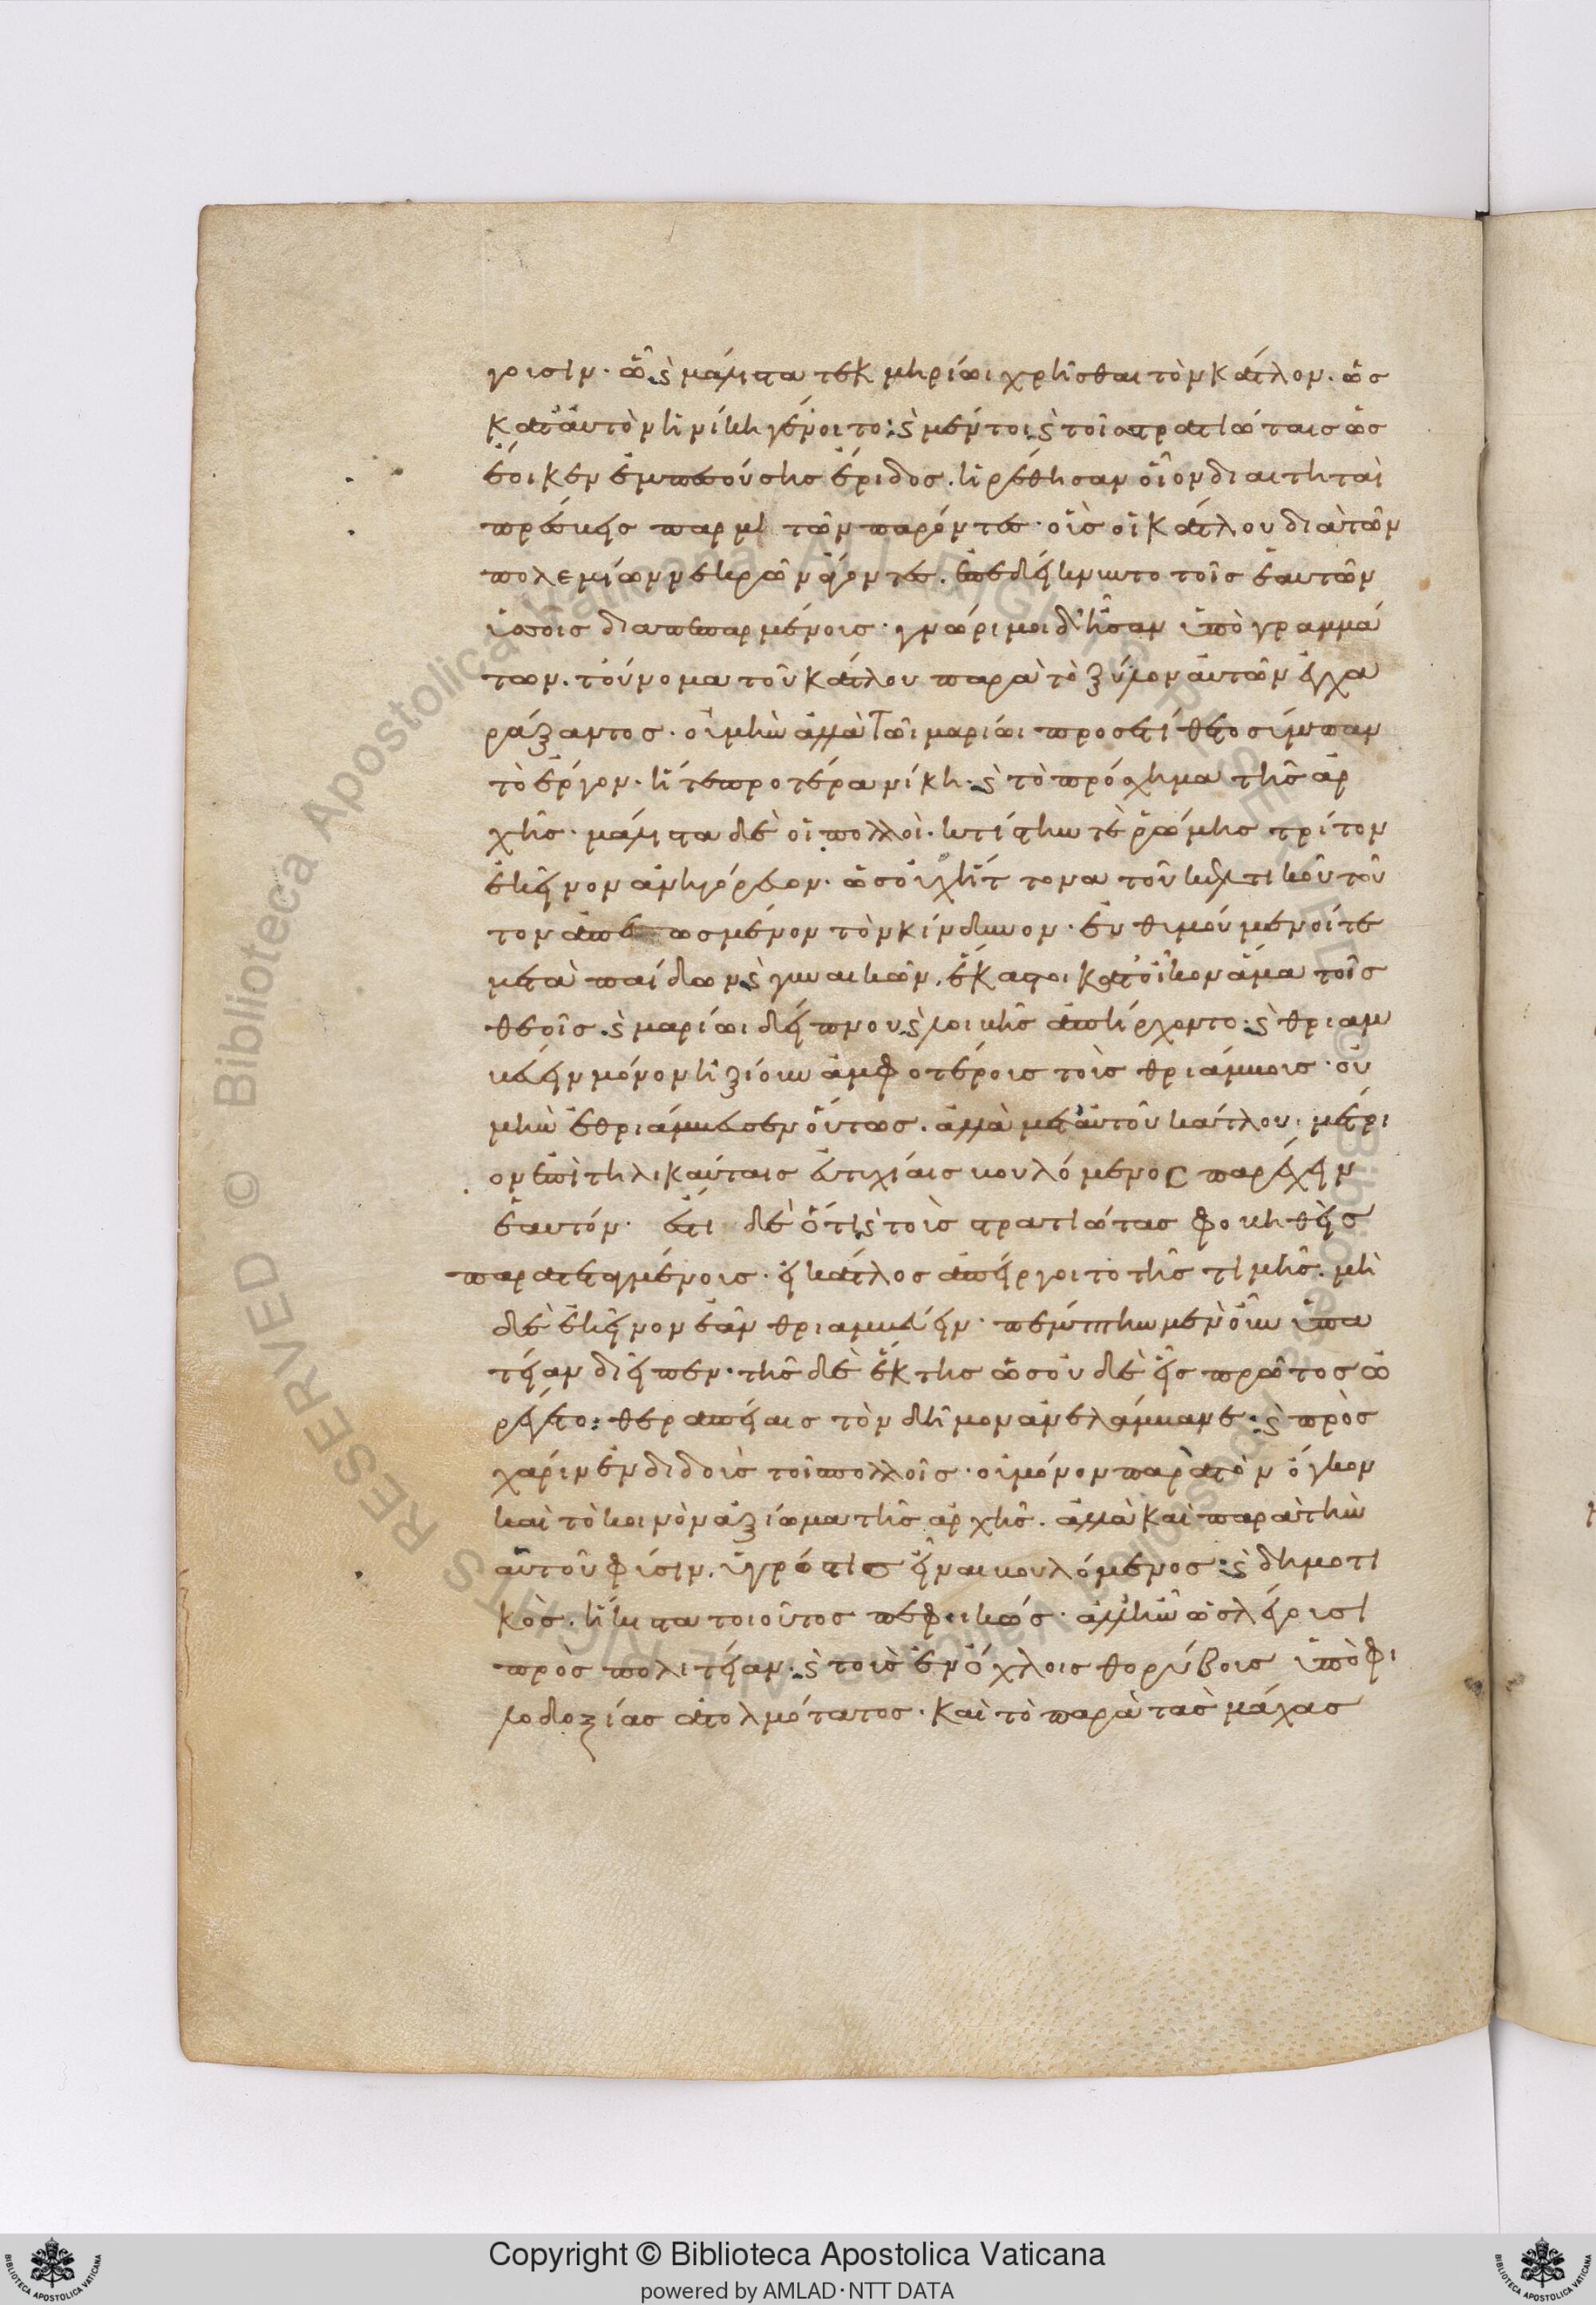 γουσιν· ᾧ καὶ μάλιστα τεκμηρίωι χρῆσθαι τὸν κάτλον· ὡς
κατ' αὐτὸν ἡ νίκη γένοιτο· καὶ μέντοι καὶ τοῖς στρατιώταις ὡς
ἔοικεν ἐμπεσούσης ἔριδος· ἡρέθησαν οἷον διαιτηταὶ
πρέσβεις παρμι τῶν παρόντες· οὓς οἱ κάτλου διὰ τῶν
πολεμίων νεκρῶν ἄγοντες· ἐπεδείκνυντο τοῖς ἑαυτῶν
ὑσσοῖς διαπεπαρμένους· γνώριμοι δ' ἦσαν ὑπὸ γραμμά
των· τοὔνομα τοῦ κάτλου παρὰ τὸ ξύλον αὐτῶν ἐγχα
ράξαντος· οὐ μὴν ἀλλὰ τῶι μαρίωι προσετίθετο σύμπαν
τὸ ἔργον· ἥ τε προτέρα νίκη· καὶ τὸ πρόσχημα τῆς ἀρ
χῆς· μάλιστα δὲ οἱ πολλοὶ· κτίστην τὲ ῥώμης τρίτον
ἐκεῖνον ἀνηγόρευον· ὡς οὐχ ἥττονα τοῦ κελτικοῦ τοῦ
τον ἀπε ωσμένον τὸν κίνδυνον· εὐθυμούμενοί τε
μετὰ παίδων καὶ γυναικῶν· ἕκαστοι κατ' οἶκον ἅμα τοῖς
θεοῖς· καὶ μαρίωι δείπνου καὶ λοιβῆς ἀπήρχοντο· καὶ θριαμ
βεύειν μόνον ἠξίουν ἀμφοτέρους τοὺς θριάμβους· οὐ
μὴν ἐθριάμβευσεν οὕτως· ἀλλὰ μετ' αὐτοῦ κάτλου· μέτρι
ον ἐπὶ τηλικαύταις εὐτυχίαις βουλόμενος παρέχειν
ἑαυτόν· ἔστι δὲ ὅτι καὶ τοὺς στρατιώτας φοβηθεὶς
παρατεταγμένους· εἰ κάτλος ἀπείργοιτο τῆς τιμῆς· μὴ
δὲ ἐκεῖνον ἐᾶν θριαμβεύειν· πέμπτην μὲν οὖν ὑπα
τείαν διεῖπεν· τῆς δὲ ἕκτης ὡς οὐδὲ εἷς πρώτος ὠ
ρέγετο· θεραπείαις τὸν δῆμον ἀνελάμβανε· καὶ πρὸς
χάριν ἐνδιδοὺς τοῖς πολλοῖς· οὐ μόνον παρὰ τὸν ὄγκον
καὶ τὸ κοινὸν ἀξίωμα τῆς ἀρχῆς· ἀλλὰ καὶ παρὰ τὴν
αὐτοῦ φύσιν· ὑγρός τις εἶναι βουλόμενος· καὶ δημοτι
κὸς· ἥκιστα τοιοῦτος πεφυκώς· ἀλλ' ἦν ὡς λέγουσι
πρὸς πολιτείαν· καὶ τοὺς ἐν ὄχλοις θορύβους ὑπὸ φι
λοδοξίας ἀτολμότατος· καὶ τὸ παρὰ τὰς μάχας
Copyright © Biblioteca Apostolica Vaticana
powered by AMLAD·NTT DATA